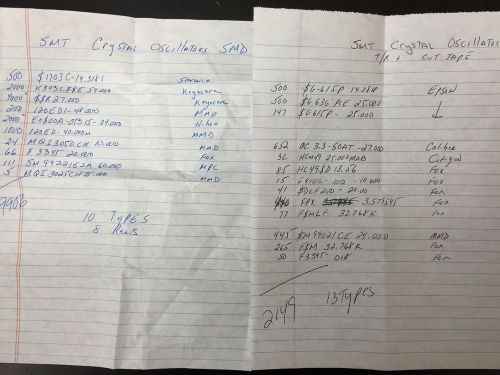 SMT Crystal Oscillators SMD
500 $1703C-14.3181
2000 K303C 54.000 Kyocera
4000 $$R 27.000 Kyocera
200 120ED1-48.000 MMD
2000 34.000
1000 120ED-40.000M MMD
24 MQI305DCH 10.000 MMD
66 F3345 20.000 Fox
111 SM99221G2A 60.000 MPC
5 MQI302SCH MMD
9906
10 TYPES
8 Reels
SMT Crystal Oscillators
T/R + CUT TAPE
500 $G-615P 14.3181 EPSON
500 $G636 PCE 25.000
147 $G615P - 25.000
652 OC 3.3-50AT-27.000 Calibre
32 HCM49 25.000MAD Citizen
85 HC49SD 18.56 Fox
15 F4100-100 - 10.000 Fox
41 $DLF200 - 20.00 Fox
FPX 3.579545 Fox
77 F$MLF 32.768K Fox
445 $M99021CE 24.000 MMD
265 F$M 32.768K Fox
50 F3345-018 Fox
2149
13 Types